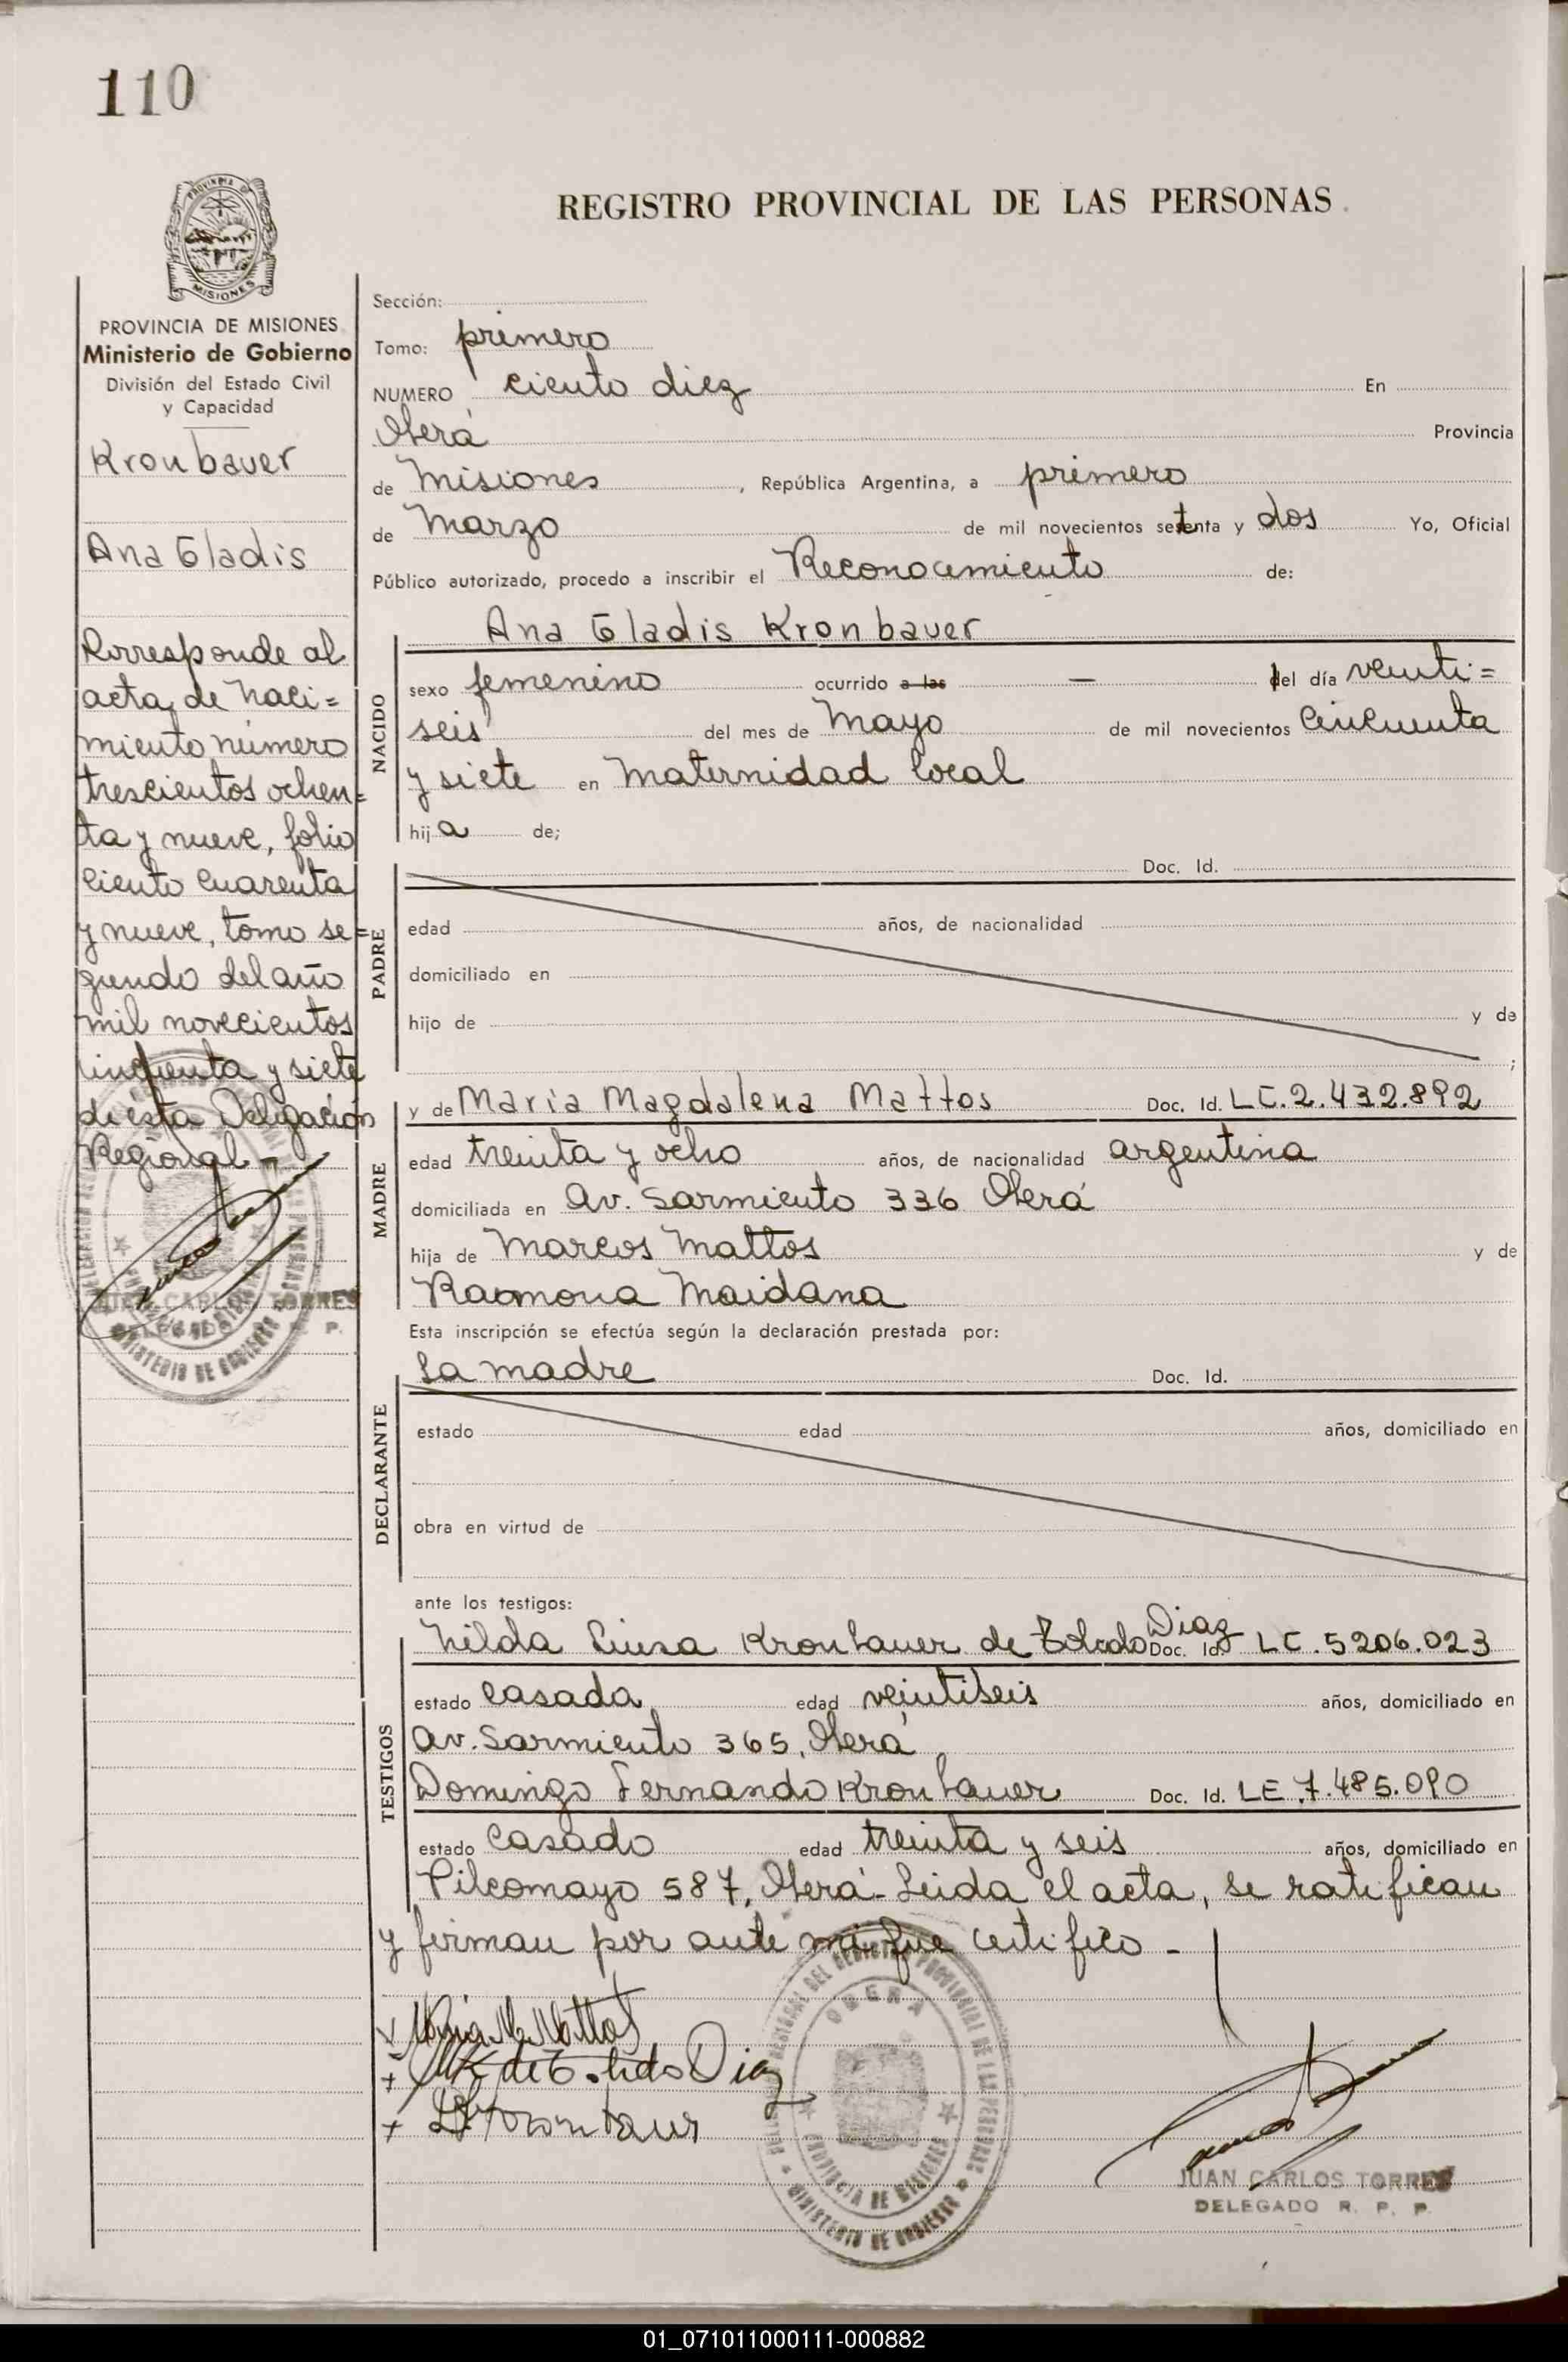 110
PROVINCIA DE
MISIONES
REGISTRO PROVINCIAL DE LAS PERSONAS
PROVINCIA DE MISIONES
Ministerio de Gobierno
División del Estado Civil
y Capacidad
Kronbauer
Ana Gladis
Corresponde al
acta de naci=
miento número
trescientos ochen=
ta y nueve, folio
ciento cuarenta
y nueve, tomo se=
gundo del año
mil novecientos
cincuenta y siete
de ésta Delegación
Regional -
JUAN CARLOS TORRES
DELEGADO R. P. P.
Sección:
Tomo: primero
NUMERO ciento diez En
Oberá Provincia
de Misiones, República Argentina, a primero
de Marzo de mil novecientos setenta y dos Yo, Oficial
Público autorizado, procedo a inscribir el Reconocimiento de:
Ana Gladis Kronbauer
NACIDO
sexo femenino ocurrido a las — del día veinti=
seis del mes de Mayo de mil novecientos cincuenta
y siete en Maternidad local
hija de;
PADRE
Doc. Id.
edad años, de nacionalidad
domiciliado en
hijo de y de
;
MADRE
y de Maria Magdalena Mattos Doc. Id. LC. 2.432.892
edad treinta y ocho años, de nacionalidad argentina
domiciliada en Av. Sarmiento 336 Oberá
hija de Marcos Mattos y de
Ramona Maidana
Esta inscripción se efectúa según la declaración prestada por:
DECLARANTE
La madre Doc. Id.
estado edad años, domiciliado en
obra en virtud de
ante los testigos:
TESTIGOS
Nilda Luisa Kronbauer de Toledo Diaz Doc. Id. LC. 5206.023
estado casada edad veintiseis años, domiciliado en
Av. Sarmiento 365, Oberá
Domingo Fernando Kronbauer Doc. Id. LE. 7.485.090
estado casado edad treinta y seis años, domiciliado en
Pilcomayo 587, Oberá - Leida el acta, se ratifican
y firman por ante mi que certifico -
Maria M. Mattos
NLK de Toledo Diaz
DFKronbauer
OBERA
PROVINCIA DE MISIONES
MINISTERIO DE GOBIERNO
JUAN CARLOS TORRES
DELEGADO R. P. P.
01_071011000111-000882